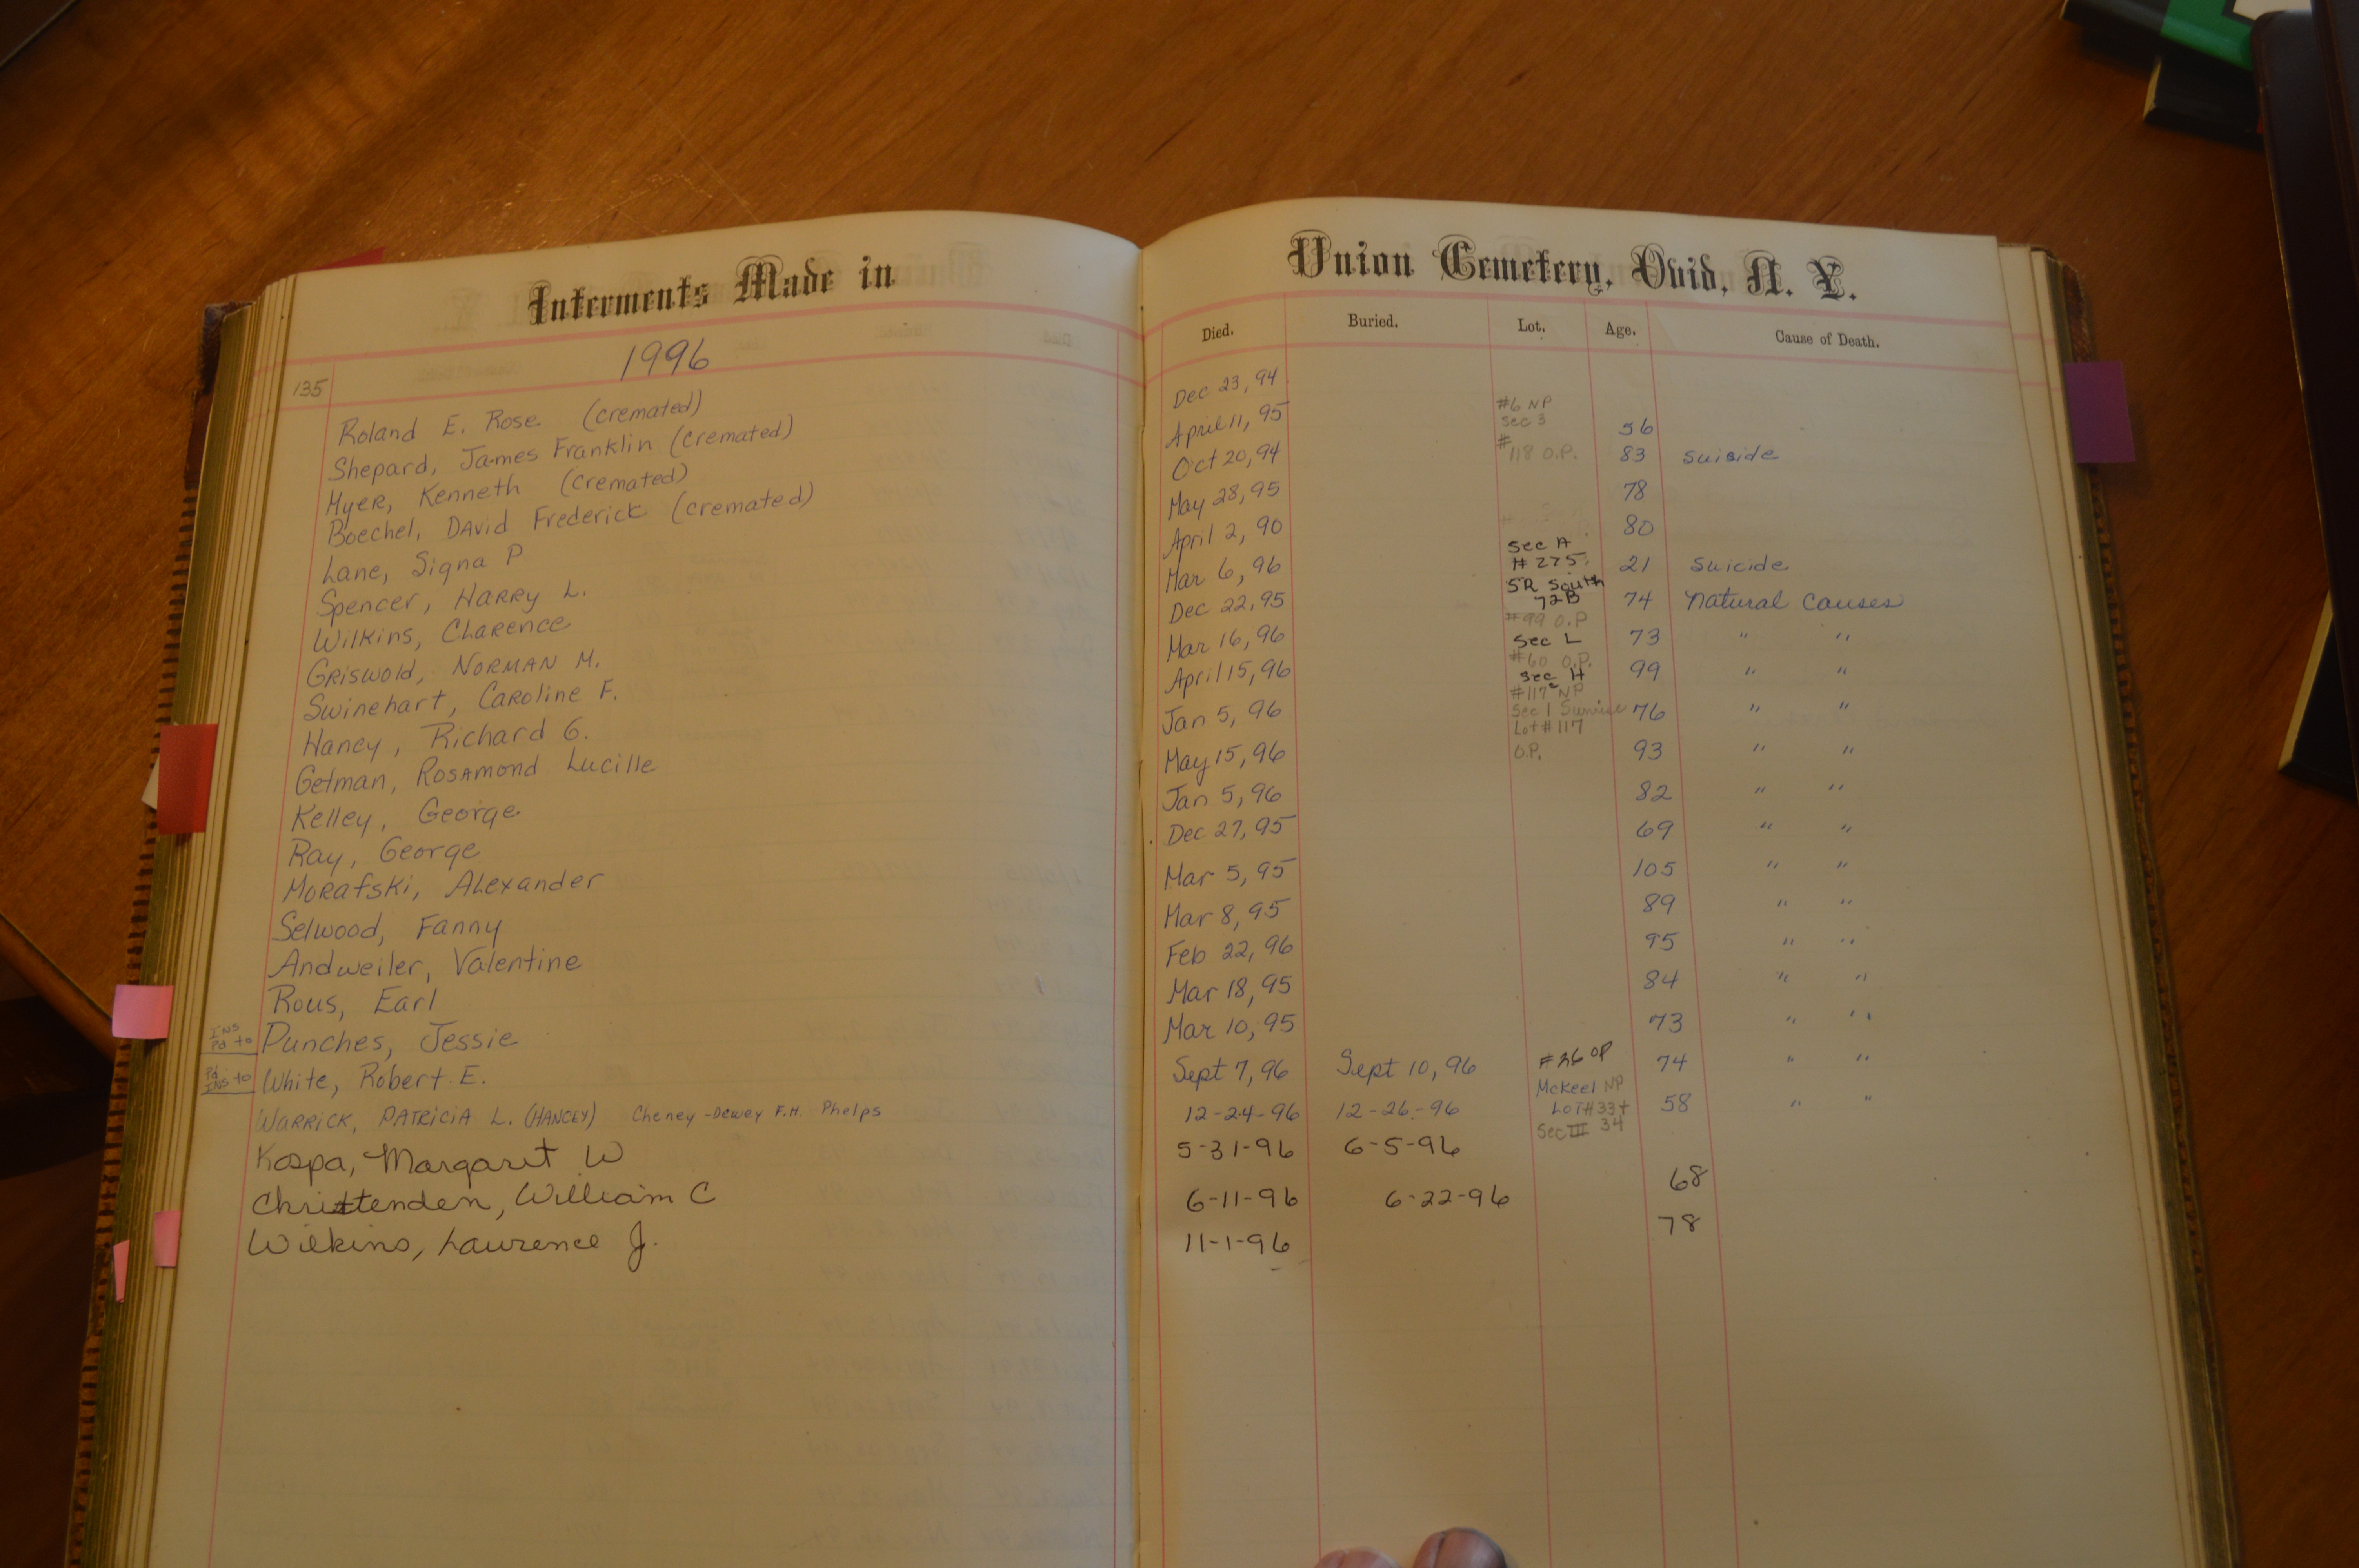 Interments Made in
Union Cemetery, Ovid, N. Y.
Died. Buried. Lot. Age. Cause of Death.
135 1996
Roland E. Rose (cremated) Dec 23, 94
Shepard, James Franklin (cremated) April 11, 95 #6 NP Sec 3 56
Myer, Kenneth (cremated) Oct 20, 94 # 118 O.P. 83 Suicide
Boechel, David Frederick (cremated) May 28, 95 78
Lane, Signa P April 2, 90 80
Spencer, Harry L. Mar 6, 96 Sec A # 275 21 Suicide
Wilkins, Clarence Dec 22, 95 SR South 72B 74 Natural Causes
Griswold, Norman M. Mar 16, 96 #99 O.P Sec L 73 " "
Swinehart, Caroline F. April 15, 96 #60 O.P. Sec H 99 " "
Haney, Richard G. Jan 5, 96 #117 NP Sec 1 Sunrise 76 " "
Getman, Rosamond Lucille May 15, 96 Lot #117 O.P. 93 " "
Kelley, George Jan 5, 96 82 " "
Ray, George Dec 27, 95 69 " "
Morafski, Alexander Mar 5, 95 105 " "
Selwood, Fanny Mar 8, 95 89 " "
Andweiler, Valentine Feb 22, 96 95 " "
Rous, Earl Mar 18, 95 84 " "
INS Pd to Punches, Jessie Mar 10, 95 73 " "
Pd INS to White, Robert E. Sept 7, 96 Sept 10, 96 #36 OP 74 " "
Warrick, Patricia L. (Hancey) Cheney-Dewey F.H. Phelps 12-24-96 12-26-96 McKeel NP Lot #33+ 34 Sec III 58 " "
Kospa, Margaret W 5-31-96 6-5-96
Chrittenden, William C 6-11-96 6-22-96 68
Wilkins, Laurence J. 11-1-96 78